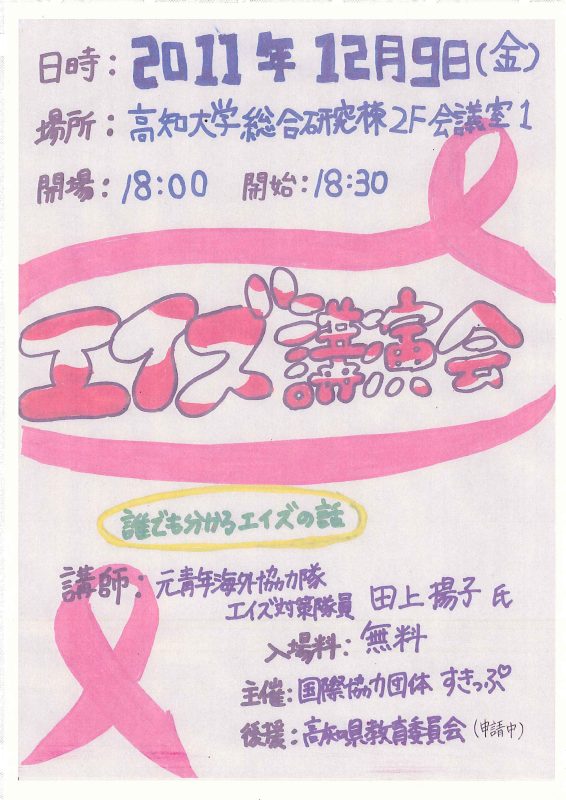 日時：2011年12月9日(金)
場所：高知大学総合研究棟2F会議室1
開場：18:00　開始：18:30
エイズ講演会
誰でも分かるエイズの話
講師：元青年海外協力隊
エイズ対策隊員　田上揚子氏
入場料：無料
主催：国際協力団体 すきっぷ♡
後援：高知県教育委員会(申請中)